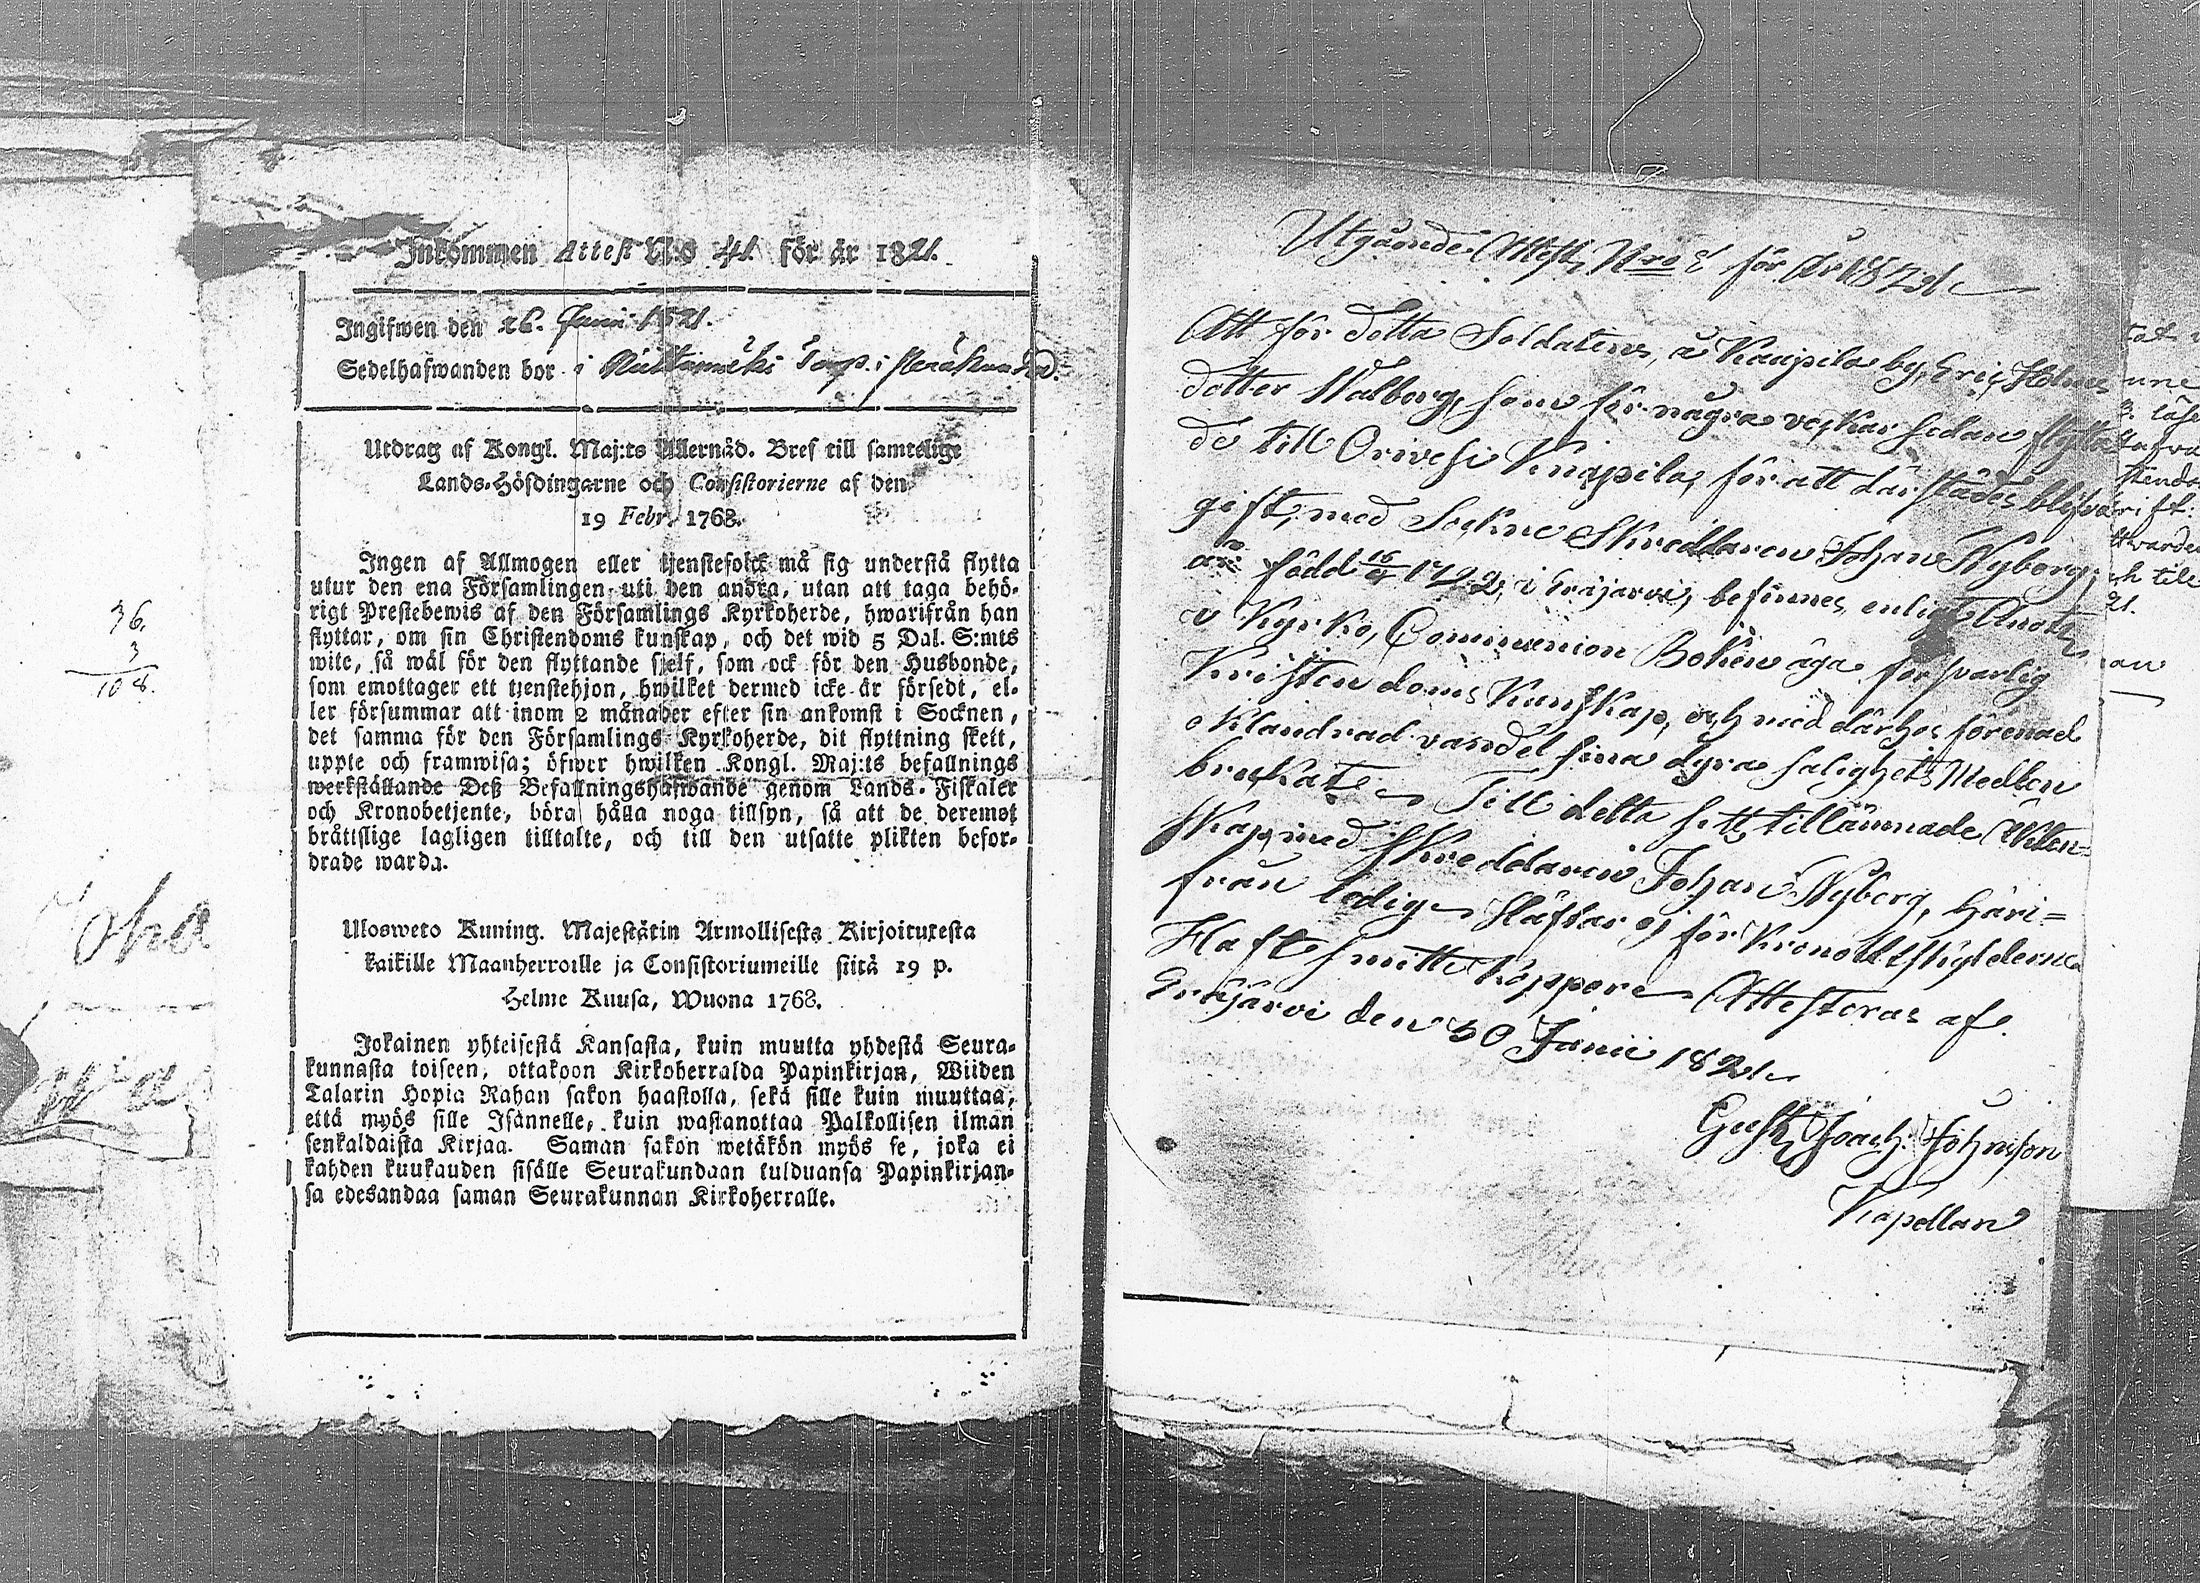 36.
3
108.
Joha
Inkommen Attest N:o 41. för år 1821.
Ingifwen den 26. Junii 1821.
Sedelhafwanden bor i Torp i
Utdrag af Kongl. Maj:ts Allernåd. Bref till samtelige
Lands-Höfdingarne och Consistorierne af den
19 Febr. 1768.
Ingen af Allmogen eller tjenstefolck må sig understå flytta
utur den ena Församlingen uti den andra, utan att taga behö-
rigt Prestebewis af den Församlings Kyrkoherde, hwarifrån han
flyttar, om sin Christendoms kunskap, och det wid 5 Dal. S:mts
wite, så wäl för den flyttande sjelf, som ock för den Husbonde,
som emottager ett tjenstehjon, hwilket dermed icke är försedt, el-
ler försummar att inom 2 månader efter sin ankomst i Socknen,
det samma för den Församlings Kyrkoherde, dit flyttning skett,
uppte och framwisa; öfwer hwilken Kongl. Maj:ts befallnings
werkställande Deß Befallningshafwande genom Lands-Fiskaler
och Kronobetjente, böra hålla noga tillsyn, så att de deremot
bråttslige lagligen tilltalte, och till den utsatte plikten befor-
drade warda.
Ulosweto Kuning. Majestätin Armollisesta Kirjoituxesta
kaikille Maanherroille ja Consistoriumeille siitä 19 p.
Helme Kuusa, Wuona 1768.
Jokainen yhteisestä Kansasta, kuin muutta yhdestä Seura-
kunnasta toiseen, ottakoon Kirkoherralda Papinkirjan, Wiiden
Talarin Hopia Rahan sakon haastolla, sekä sille kuin muuttaa,
että myös sille Isännelle, kuin wastanottaa Palkollisen ilman
senkaldaista Kirjaa. Saman sakon wetäkön myös se, joka ei
kahden kuukauden sisälle Seurakundaan tulduansa Papinkirjan-
sa edesandaa saman Seurakunnan Kirkoherralle.
Utgående Attest, Nro för År 1821.
Att för detta Soldatens, å Kaupila by, Eric Holms
dotter Walborg, som för några veckar sedan flytta
de till Orivesi Knapila, för att därstädes blifva
gift, med Sockne Skreddaren Johan Nyberg,
är född 16/4 1792, i Eräjärvi, befinnes, enligt Anott.
i Kyrko, Communion Boken äga försvarlig
Kristendoms Kunskap, och med därhos förenad
oklandrad vandel sina dyra salighets Medlen
brukat. Till detta sitt, tillämnade Ækten-
skap, med Skreddaren Johan Nyberg, häri-
från ledig. Häftar ej för Kronoutskylderne.
Haft smitte Koppor. Attesteras af.
Eräjärvi den 30 Junii 1821.
Gust. Joach. Johnsson
Kapellan